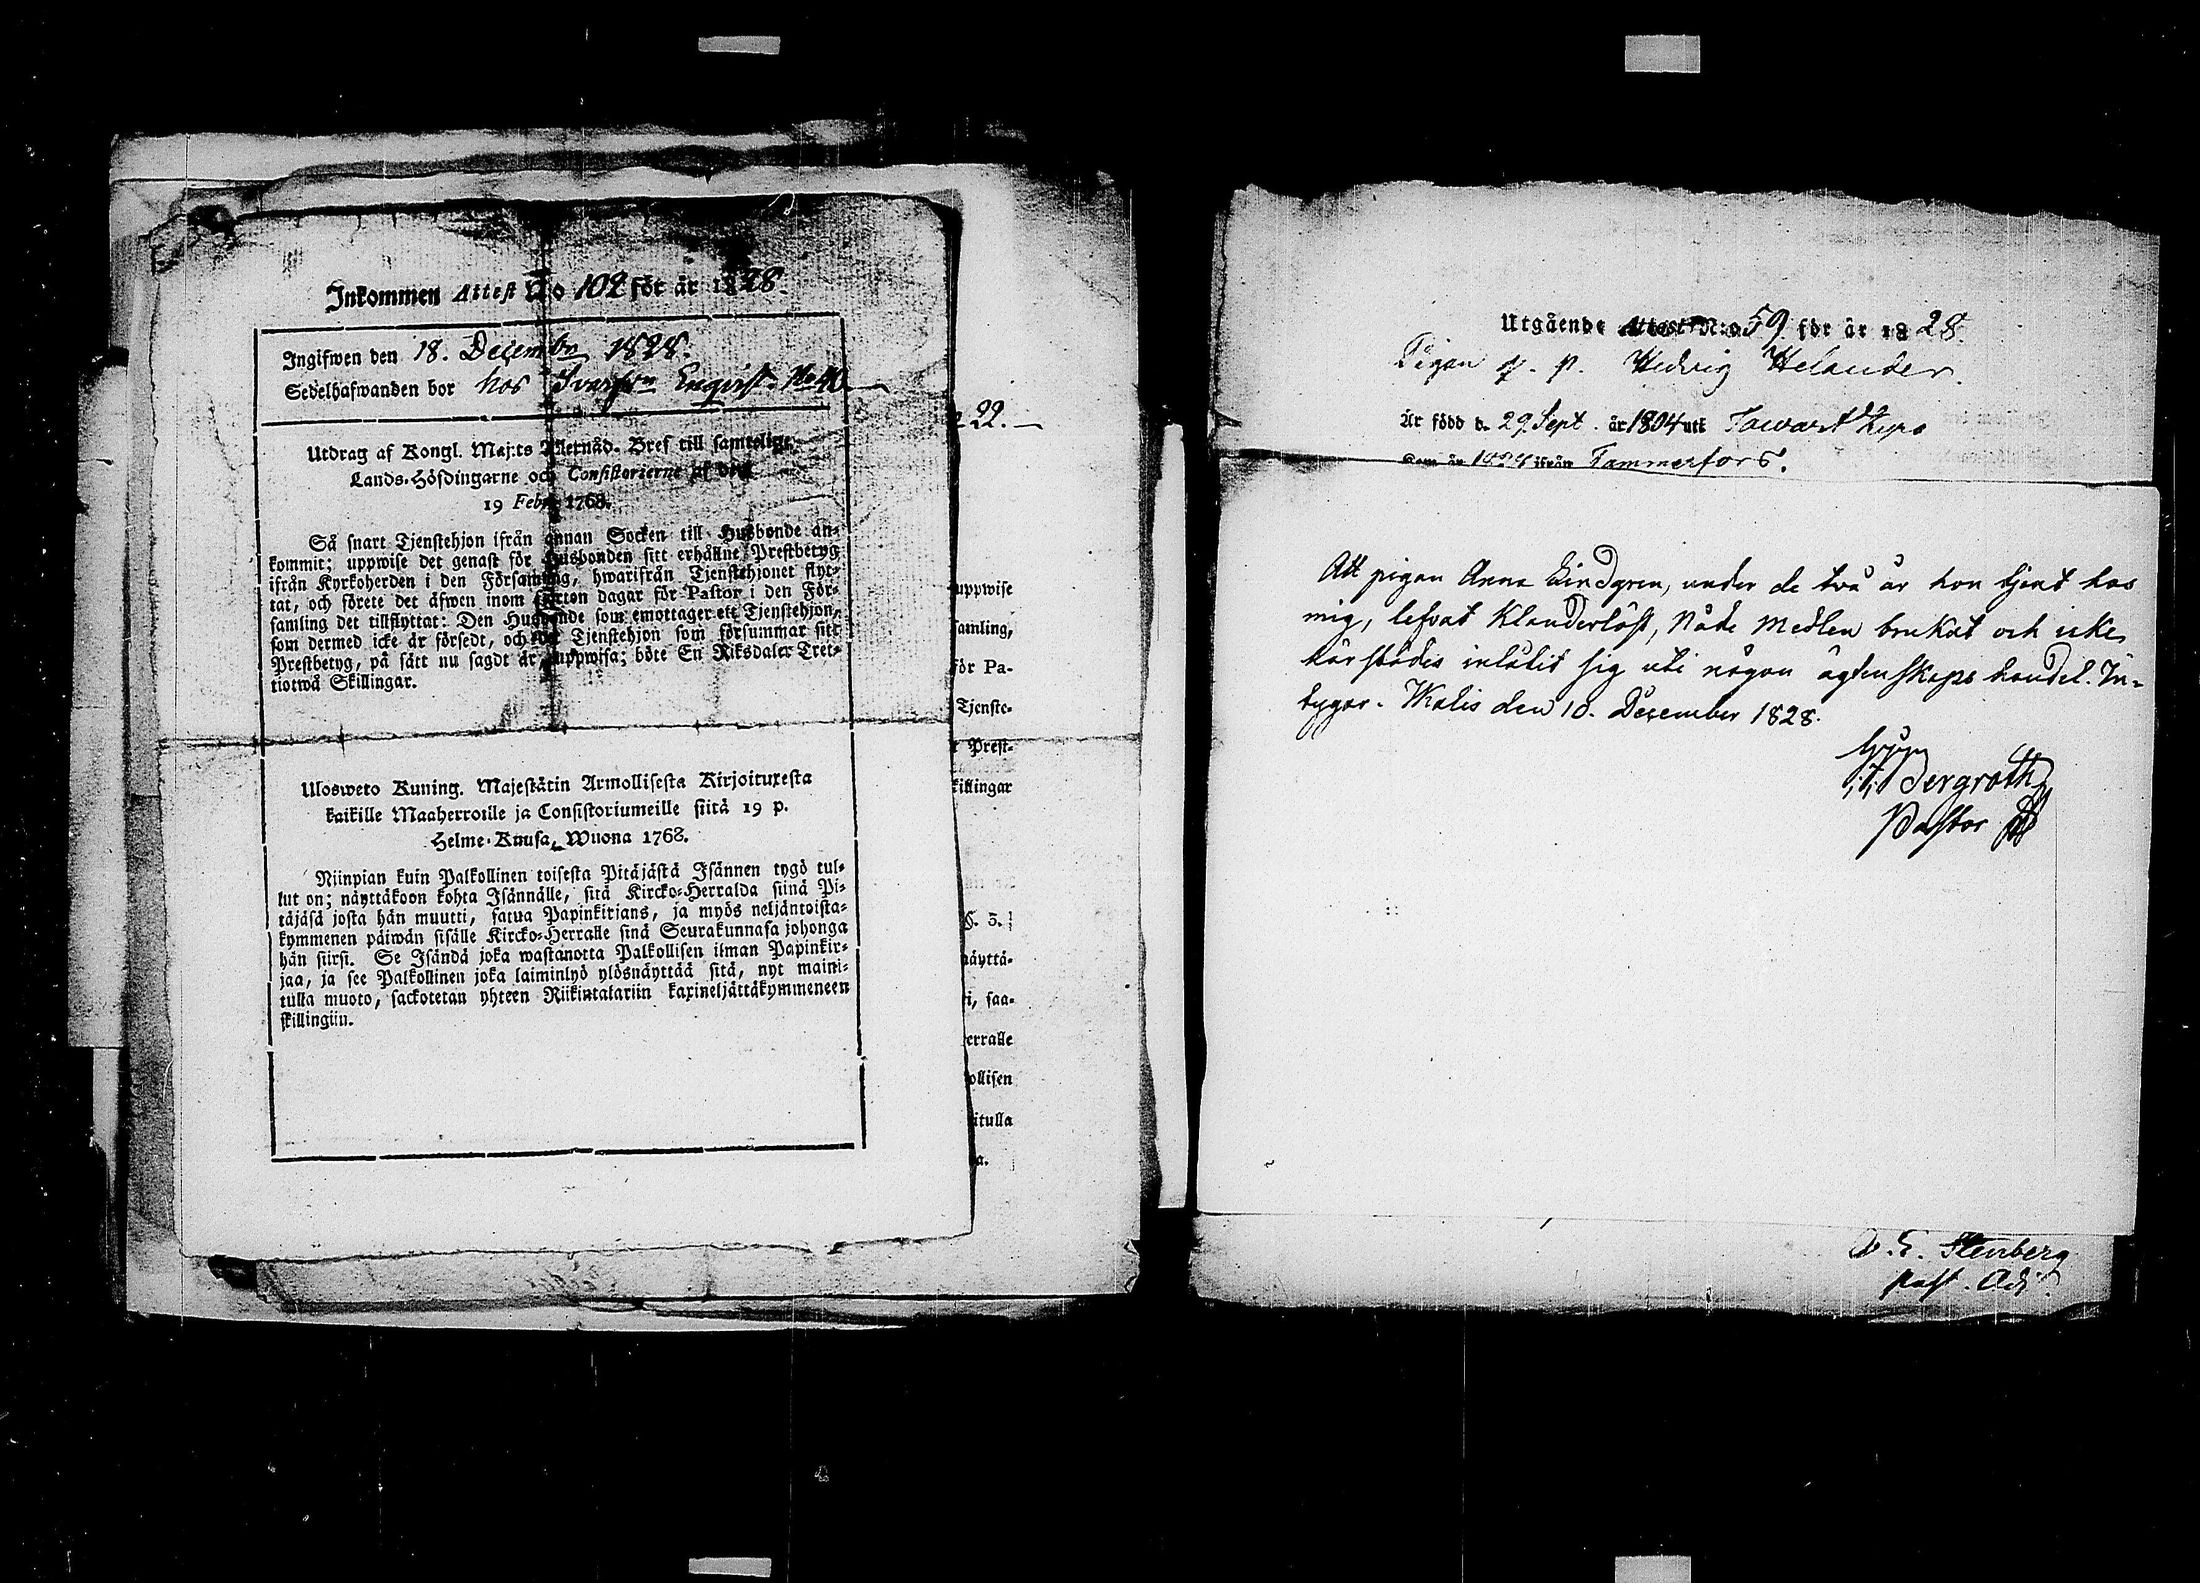 Inkommen Attest No 102 för år 1828.
Ingifwen den 18. Decembr 1828.
Sedelhafwanden bor hos Engvist No 40
Utdrag af Kongl. Maj:ts Allernåd. Bref till samtelige
Lands-Höfdingarne och Consistorierne af den
19 Febr. 1768.
Så snart Tjenstehjon ifrån annan Socken till Husbonde an-
kommit; uppwise det genast för Husbonden sitt erhållne Prestbetyg
ifrån Kyrkoherden i den Församling, hwarifrån Tjenstehjonet flyt-
tat, och förete det äfwen inom fjorton dagar för Pastor i den För-
samling det tillflyttat: Den Husbonde som emottager ett Tjenstehjon,
som dermed icke är försedt, och det Tjenstehjon som försummar sitt
Prestbetyg, på sätt nu sagdt är, uppwisa; böte En Riksdaler Tret-
tiotwå Skillingar.
Ulosweto Kuning. Majestätin Armollisesta Kirjoituxesta
kaikille Maaherroille ja Consistoriumeille siitä 19 p.
Helme-Kuusa, Wuona 1768.
Niinpian kuin Palkollinen toisesta Pitäjästä Isännen tygö tul-
lut on; näyttäkoon kohta Isännälle, sitä Kircko-Herralda siinä Pi-
täjäsä josta hän muutti, saatua Papinkirjans, ja myös neljäntoista-
kymmenen päiwän sisälle Kircko-Herralle sinä Seurakunnasa johonga
hän siirsi. Se Isändä joka wastanotta Palkollisen ilman Papinkir-
jaa, ja see Palkollinen joka laiminlyö ylösnäyttää sitä, nyt maini-
tulla muoto, sackotetan yhteen Riikintalariin kaxineljättäkymmeneen
skillingiin.
22.
uppwise
samling,
för Pa-
Tjenste-
r Prest-
killingar
S. 3.
näyttä-
i, saa-
erralle
ollisen
itulla
a.
Utgående Attest N:o 59 för år 1828.
Pigan o. p. Hedvig Helander.
Är född d. 29 Sept. år 1804 uti Tawast
Kom år 1824 ifrån Tammerfors.
Att pigan Anna Lindgren, under de två år hon tjent hos
mig, lefvat Klanderlöst, Nåde Medlen brukat och icke
härstädes inlåtit sig uti någon ägtenskaps handel. In-
tygar. Walis den 10. December 1828.
Bergroth
Pastor
Stenberg
past. Adj.